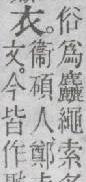 俗爲麤繩索
衣。衞碩人鄭
文。今皆作